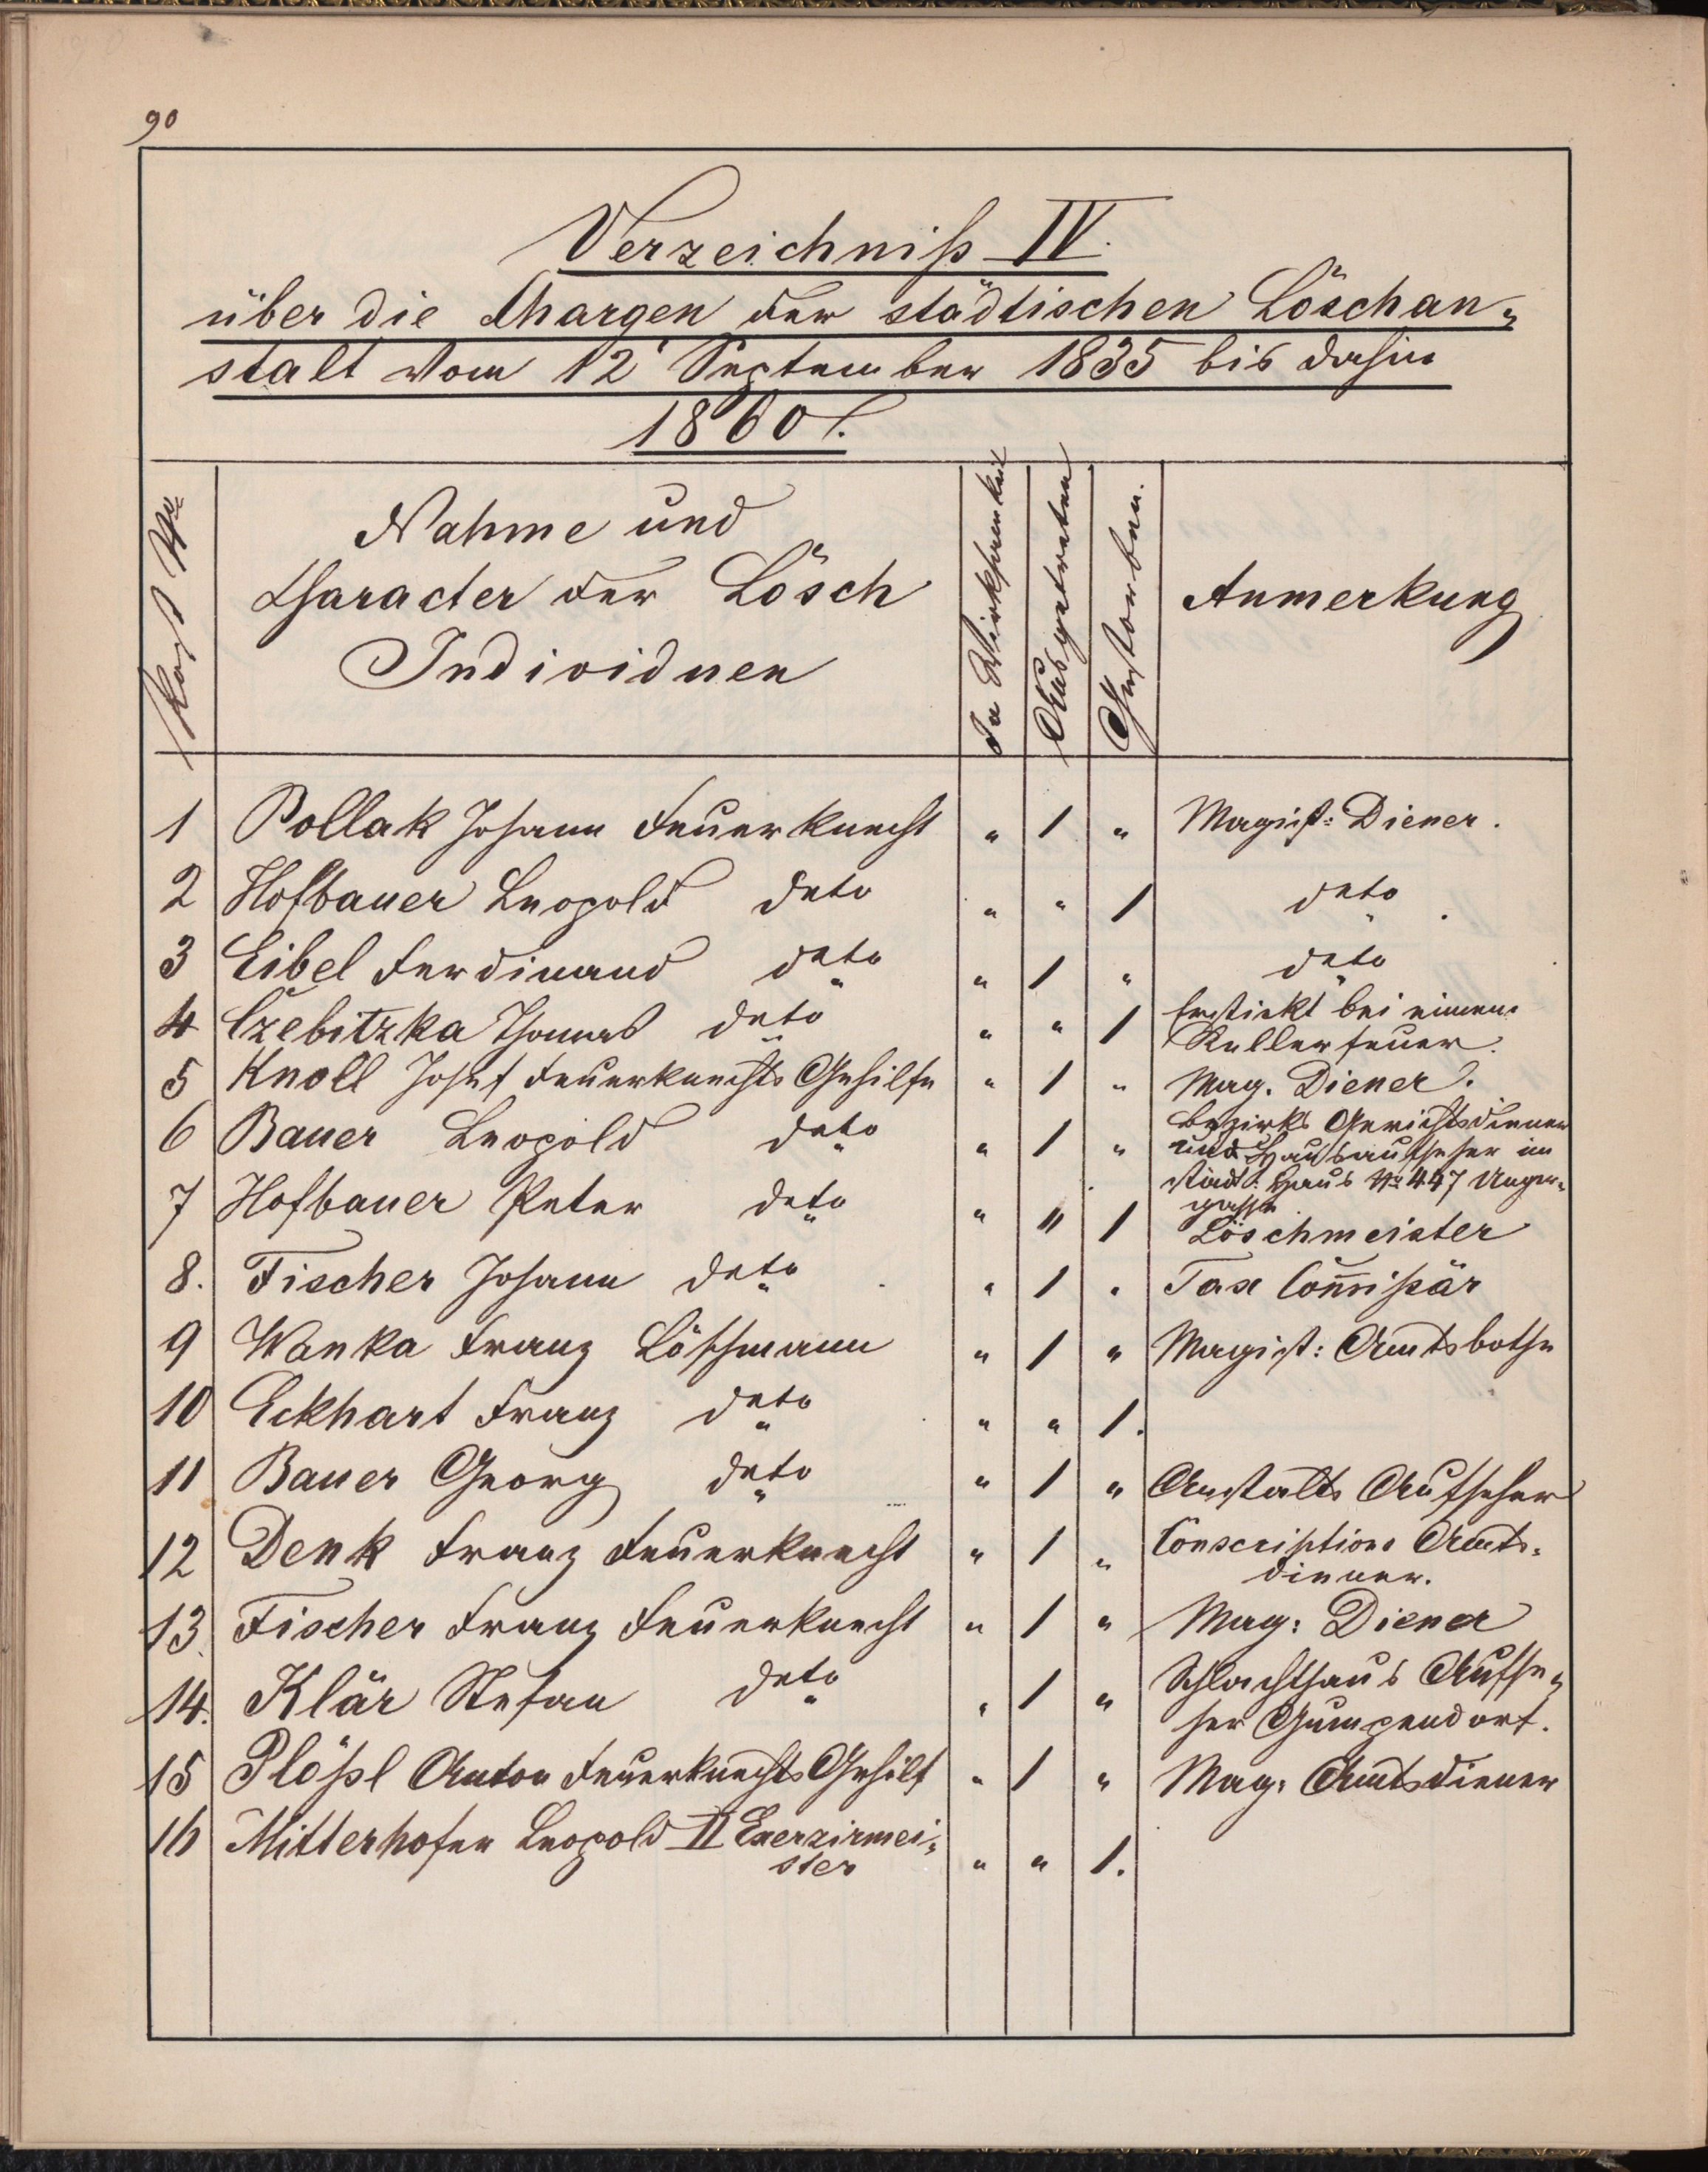 90
Verzeichniß IV.
über die Chargen der städtischen Löschan-
stalt vom 12' September 1835 bis dahin
1860/.
Post No
Nahme und
Character der Lösch
Individuen
In Wirksamkeit
Ausgetreten
Gestorben.
Anmerkung
1 Pollak Johann Feuerknecht " 1 " Magist: Diener.
2 Hofbauer Leopold deto " " 1 deto
3 Eibel Ferdinand deto " 1 " deto
4 Czebitzka Thomas deto " " 1 Erstickt bei einem
Kellerfeuer.
5 Knoll Josef Feuerknechts Gehilfe " 1 " Mag. Diener.
6 Bauer Leopold deto " 1 " Bezirks Gerichtsdiener
und Hausaufseher im
städt: Haus No 447 Unger-
gasse
7 Hofbauer Peter deto " " 1 Löschmeister
8. Fischer Johann deto " 1 " Tax Com̅issär
9 Wanka Franz Löschmann " 1 " Magist: Amtsbothe
10 Eckhart Franz deto " " 1.
11 Bauer Georg deto " 1 " Anstalts Aufseher
12 Denk Franz Feuerknecht " 1 " Conscriptions Amts-
diener.
13. Fischer Franz Feuerknecht " 1 " Mag: Diener
14. Klär Stefan deto " 1 " Schlachthaus Aufse-
her Gumpendorf.
15 Plößl Anton Feuerknechts Gehilf " 1 " Mag: Amtsdiener
16 Mitterhofer Leopold II Exerzirmei-
ster " " 1.